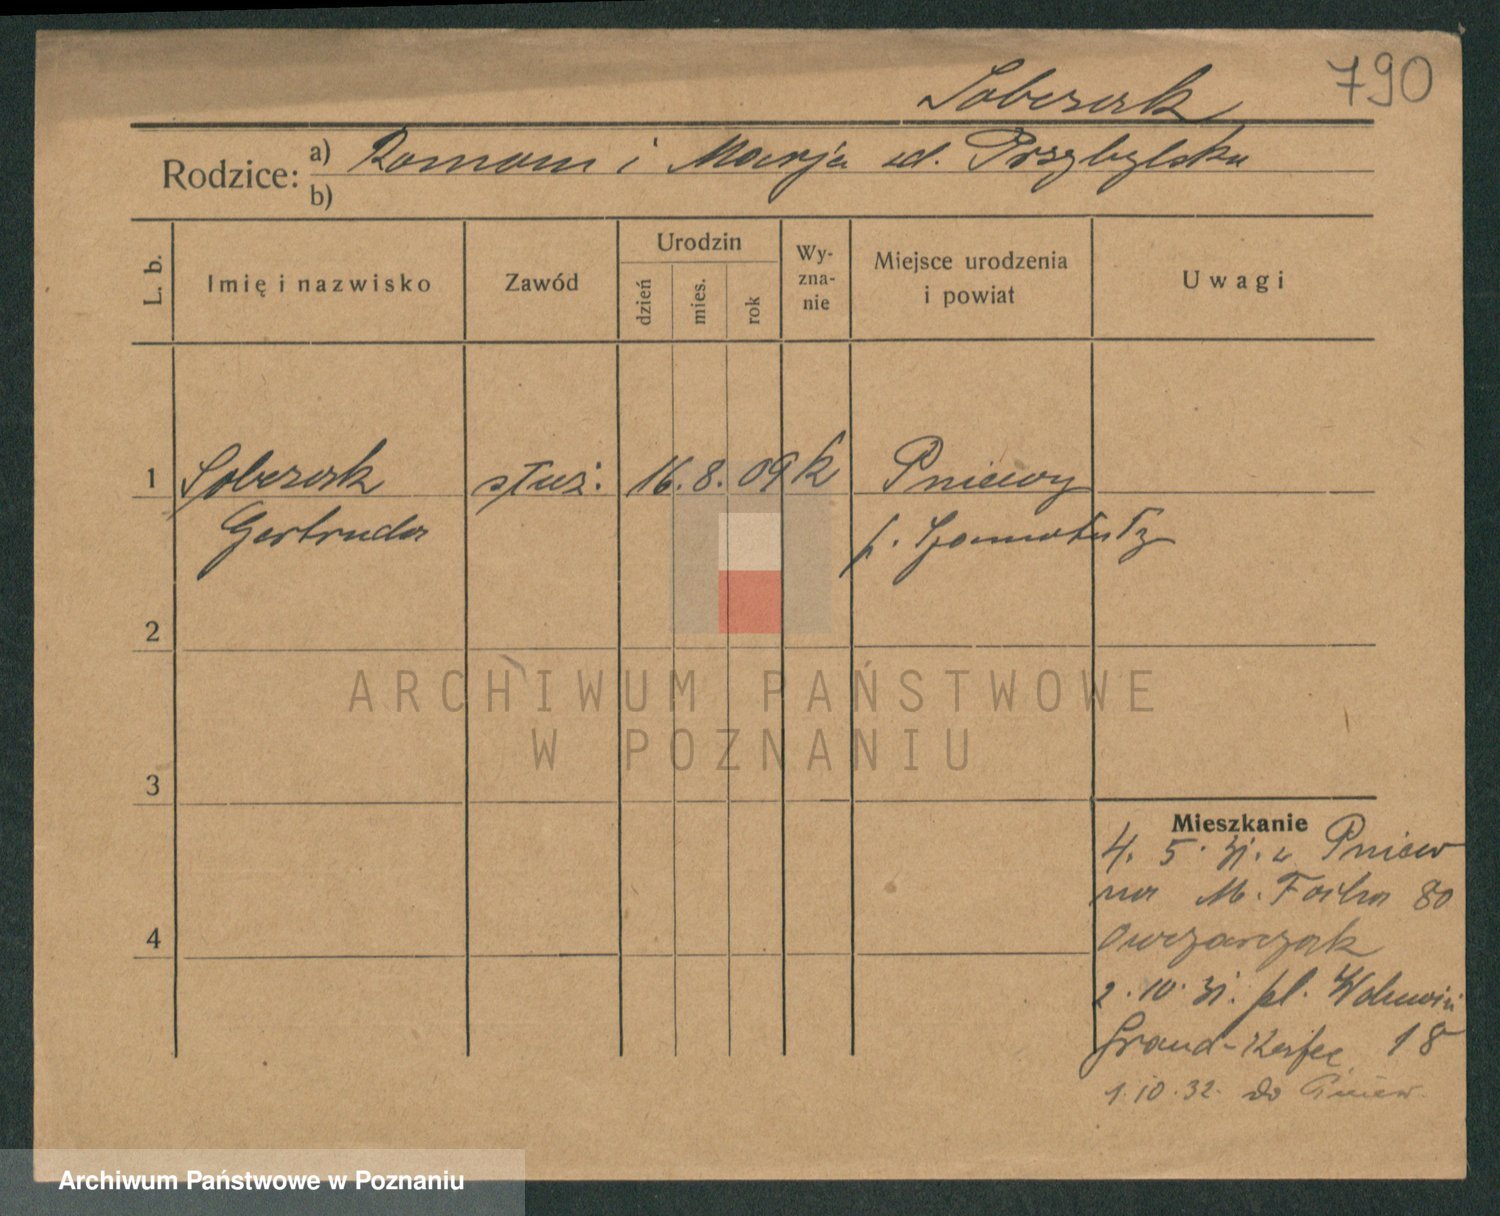 790
Sobczak
Rodzice: a) Roman i Marja zd. Przybylska
b)
L. b. Imię i nazwisko Zawód Urodzin dzień mies. rok Wy-zna-nie Miejsce urodzenia i powiat Uwagi
1 Sobczak służ: 16. 8. 09 k Pniewy
Gertruda p. Szamotuły
2
ARCHIWUM PAŃSTWOWE
W POZNANIU
3
Mieszkanie
4. 5. 31. z Pniew
na M. Focha 80
4
Owczarczak
2. 10. 31. pl. Wolności
Grand-Kafee 18
1. 10. 32. do Pniew.
Archiwum Państwowe w Poznaniu